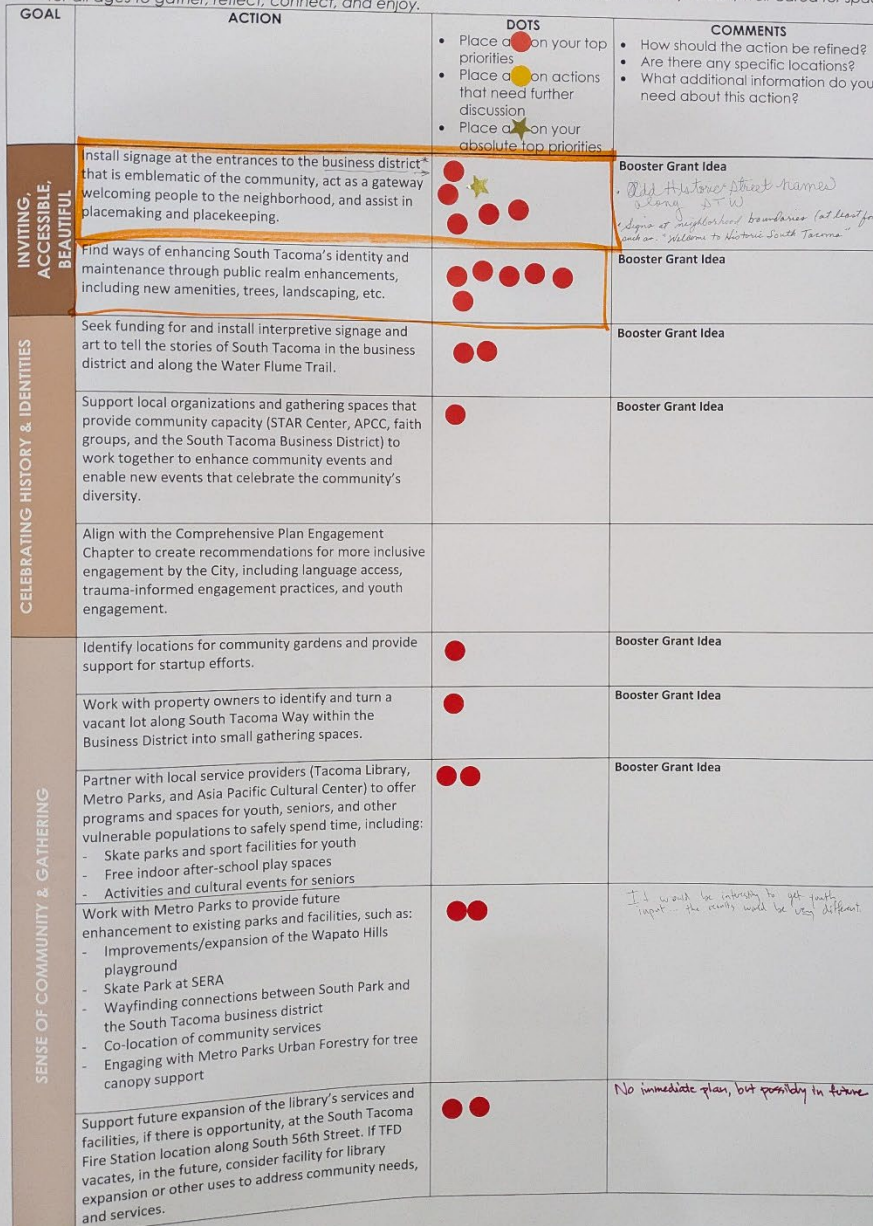 for all ages to gather, reflect, connect, and enjoy.
GOAL
ACTION
DOTS
• Place a on your top
priorities
• Place a on actions
that need further
discussion
• Place a on your
absolute top priorities
COMMENTS
• How should the action be refined?
• Are there any specific locations?
• What additional information do you
need about this action?
INVITING,
ACCESSIBLE,
BEAUTIFUL
Install signage at the entrances to the business district*
that is emblematic of the community, act as a gateway
welcoming people to the neighborhood, and assist in
placemaking and placekeeping.
Booster Grant Idea
• Add Historic Street names
along STW
• Signs at neighborhood boundaries (at least
such as "Welcome to Historic South Tacoma"
Find ways of enhancing South Tacoma's identity and
maintenance through public realm enhancements,
including new amenities, trees, landscaping, etc.
Booster Grant Idea
CELEBRATING HISTORY & IDENTITIES
Seek funding for and install interpretive signage and
art to tell the stories of South Tacoma in the business
district and along the Water Flume Trail.
Booster Grant Idea
Support local organizations and gathering spaces that
provide community capacity (STAR Center, APCC, faith
groups, and the South Tacoma Business District) to
work together to enhance community events and
enable new events that celebrate the community's
diversity.
Booster Grant Idea
Align with the Comprehensive Plan Engagement
Chapter to create recommendations for more inclusive
engagement by the City, including language access,
trauma-informed engagement practices, and youth
engagement.
SENSE OF COMMUNITY & GATHERING
Identify locations for community gardens and provide
support for startup efforts.
Booster Grant Idea
Work with property owners to identify and turn a
vacant lot along South Tacoma Way within the
Business District into small gathering spaces.
Booster Grant Idea
Partner with local service providers (Tacoma Library,
Metro Parks, and Asia Pacific Cultural Center) to offer
programs and spaces for youth, seniors, and other
vulnerable populations to safely spend time, including:
- Skate parks and sport facilities for youth
- Free indoor after-school play spaces
- Activities and cultural events for seniors
Booster Grant Idea
Work with Metro Parks to provide future
enhancement to existing parks and facilities, such as:
- Improvements/expansion of the Wapato Hills
playground
- Skate Park at SERA
- Wayfinding connections between South Park and
the South Tacoma business district
- Co-location of community services
- Engaging with Metro Parks Urban Forestry for tree
canopy support
It would be interesting to get youth
input - the results would be very different.
Support future expansion of the library's services and
facilities, if there is opportunity, at the South Tacoma
Fire Station location along South 56th Street. If TFD
vacates, in the future, consider facility for library
expansion or other uses to address community needs,
and services.
No immediate plan, but possibly in future